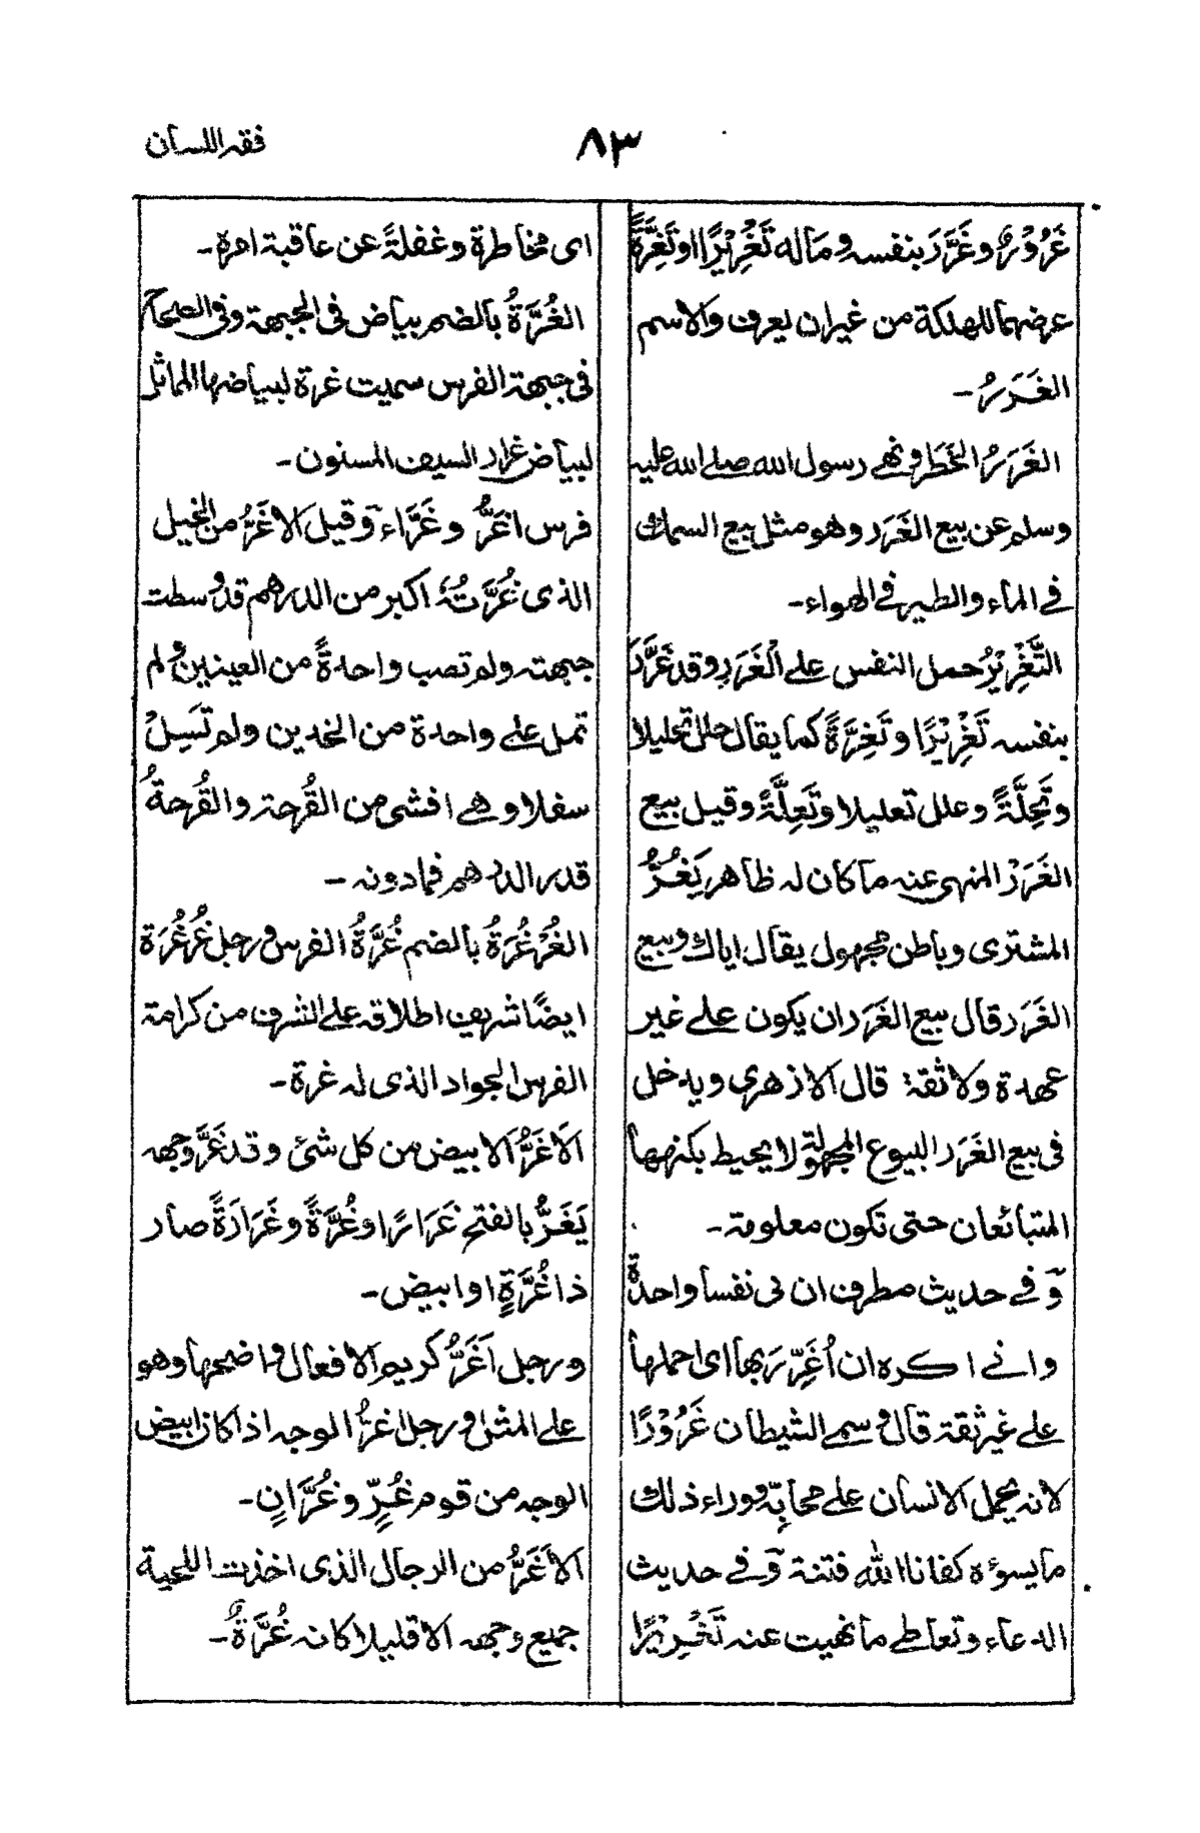 فقه اللسان
٨٣
غَرُوْرٌ وغَرَّرَ بنفسه وماله تَغْرِيْرًا او تَغِرَّةً
عرضهما للهلكة من غيران يعرف والاسم
الغَرَرُ۔
الغَرَرُ الخَطَر ونهى رسول الله صلے الله عليه
وسلم عن بيع الغَرَر وهو مثل بيع السمك
فے الماء والطير فے الهواء۔
التَّغْرِيْرُ حمل النفس علے الْغَرَرِ وقد غَرَّرَ
بنفسه تَغْرِيْرًا و تَغِرَّةً كما يقال حلل تحليلا
و تَحِلَّةً وعلل تعليلا و تَعِلَّةً وقيل بيع
الغَرَرْ المنهى عنه ما كان له ظاهر يَغُرُّ
المشترى وباطن مجهول يقال اياك وبيع
الغَرَر قال بيع الغَرَر ان يكون علے غير
عهدة ولا ثقة قال الازهرى ويدخل
فى بيع الغَرَر البيوع المجهولة لا يحيط بكنهها
المتبائعان حتى تكون معلومة۔
وَ فے حديث مطرف ان لى نفسا واحدةً
وانے اكره ان اُغَرِّرَ بها اى احملها
علے غير ثقة قال و سمے الشيطان غَرُوْرًا
لانه يحمل الانسان علے محابِّه و وراء ذلك
ما يسوءه كفانا الله فتنة وَ فے حديث
الدعاء و تعاطے ما نهيت عنه تَغْرِيْرًا
اى مخاطرة و غفلةً عن عاقبة امره۔
الغُرَّةُ بالضم بياض فى الجبهة وفى الصحاح
فى جبهة الفرس سميت غرة لبياضها المماثل
لبياض غرار السيف المسنون۔
فرس اغَرُّ و غَرَّاء وَ قيل الاغَرُّ من الخيل
الذى غُرَّتُهٗ اكبر من الدرهم قد وسطت
جبهته ولم تصب واحدةً من العينين و لم
تمل علے واحدة من الخدين ولم تَسِلْ
سفلا و هے افشى من القُرحة والقُرحةُ
قدر الدرهم فما دونه۔
الغُرْغُرَةُ بالضم غُرَّةُ الفرس و رجل غُرْغُرَة
ايضًا شريف اطلاقه علے الشرف من كرامة
الفرس الجواد الذى له غرة۔
الاَغَرُّ الابيض من كل شئ و قد غَرَّ وجهه
يَغَرُّ بالفتح غَرَارًا و غُرَّةً و غَرَارَةً صار
ذا غُرَّةٍ او ابيض۔
و رجل اَغَرُّ كريم الافعال واضحها و هو
علے المثل و رجل اغرُّ الوجه اذا كان ابيض
الوجه من قوم غُرٍّ و غُرَّانٍ۔
الاَغَرُّ من الرجال الذى اخذت اللحية
جميع وجهه الا قليلا كانه غُرَّةٌ۔